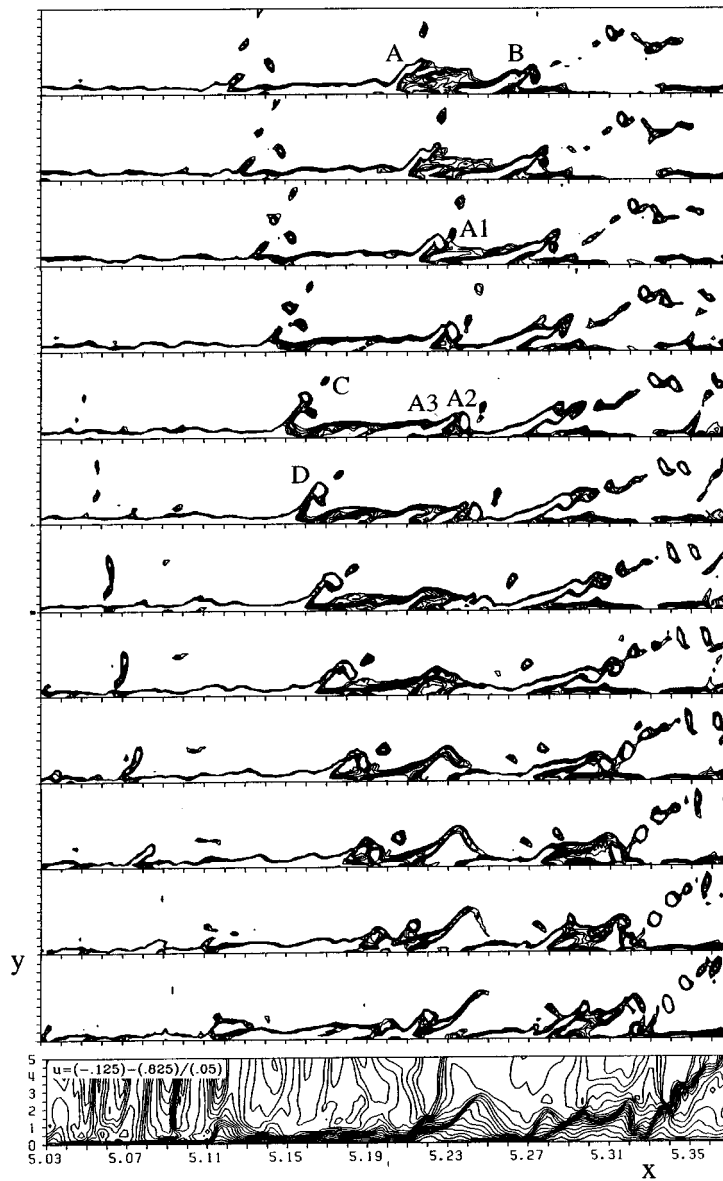 A B
A1
C A3 A2
D
y
u=(-.125)-(.825)/(.05)
5
4
3
2
1
0
5.03 5.07 5.11 5.15 5.19 5.23 5.27 5.31
x